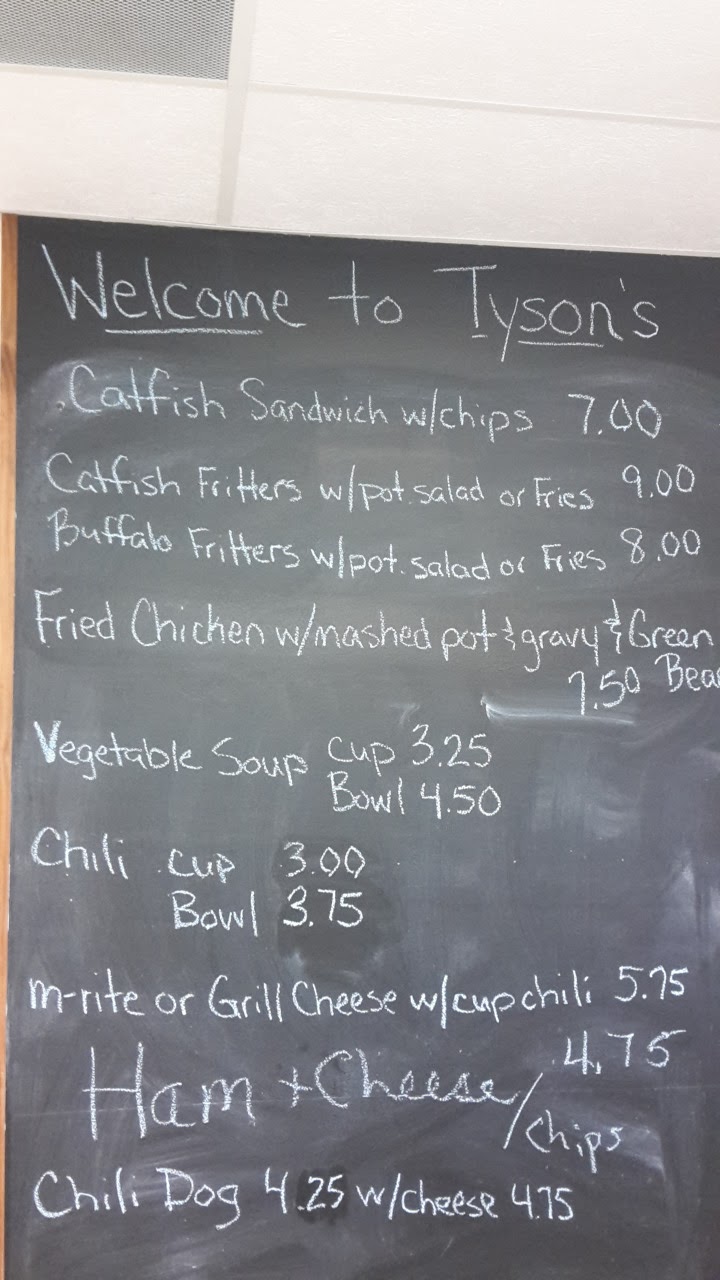 Welcome to Tyson's
Catfish Sandwich w/chips 7.00
Catfish Fritters w/pot.salad or Fries 9.00
Buffalo Fritters w/pot.salad or Fries 8.00
Fried Chicken w/mashed pot & gravy & Green
7.50 Bea
Vegetable Soup Cup 3.25
Bowl 4.50
Chili cup 3.00
Bowl 3.75
m-rite or Grill Cheese w/cup chili 5.75
4.75
Ham + Cheese/
chips
Chili Dog 4.25 w/cheese 4.75